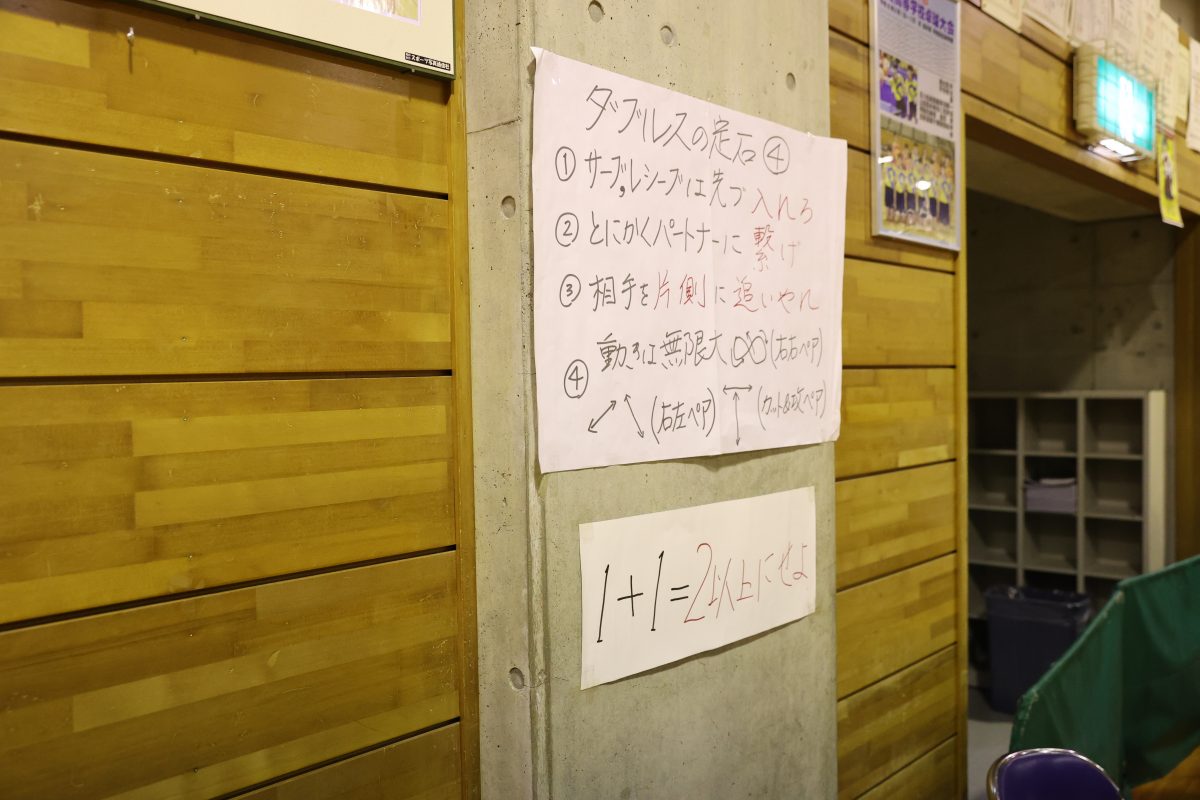 ダブルスの定石④
①サーブ,レシーブは先づ入れろ
②とにかくパートナーに繋げ
③相手を片側に追いやれ
④動きは無限大(右右ペア)
(右左ペア)(カット&攻ペア)
1+1=2以上にせよ